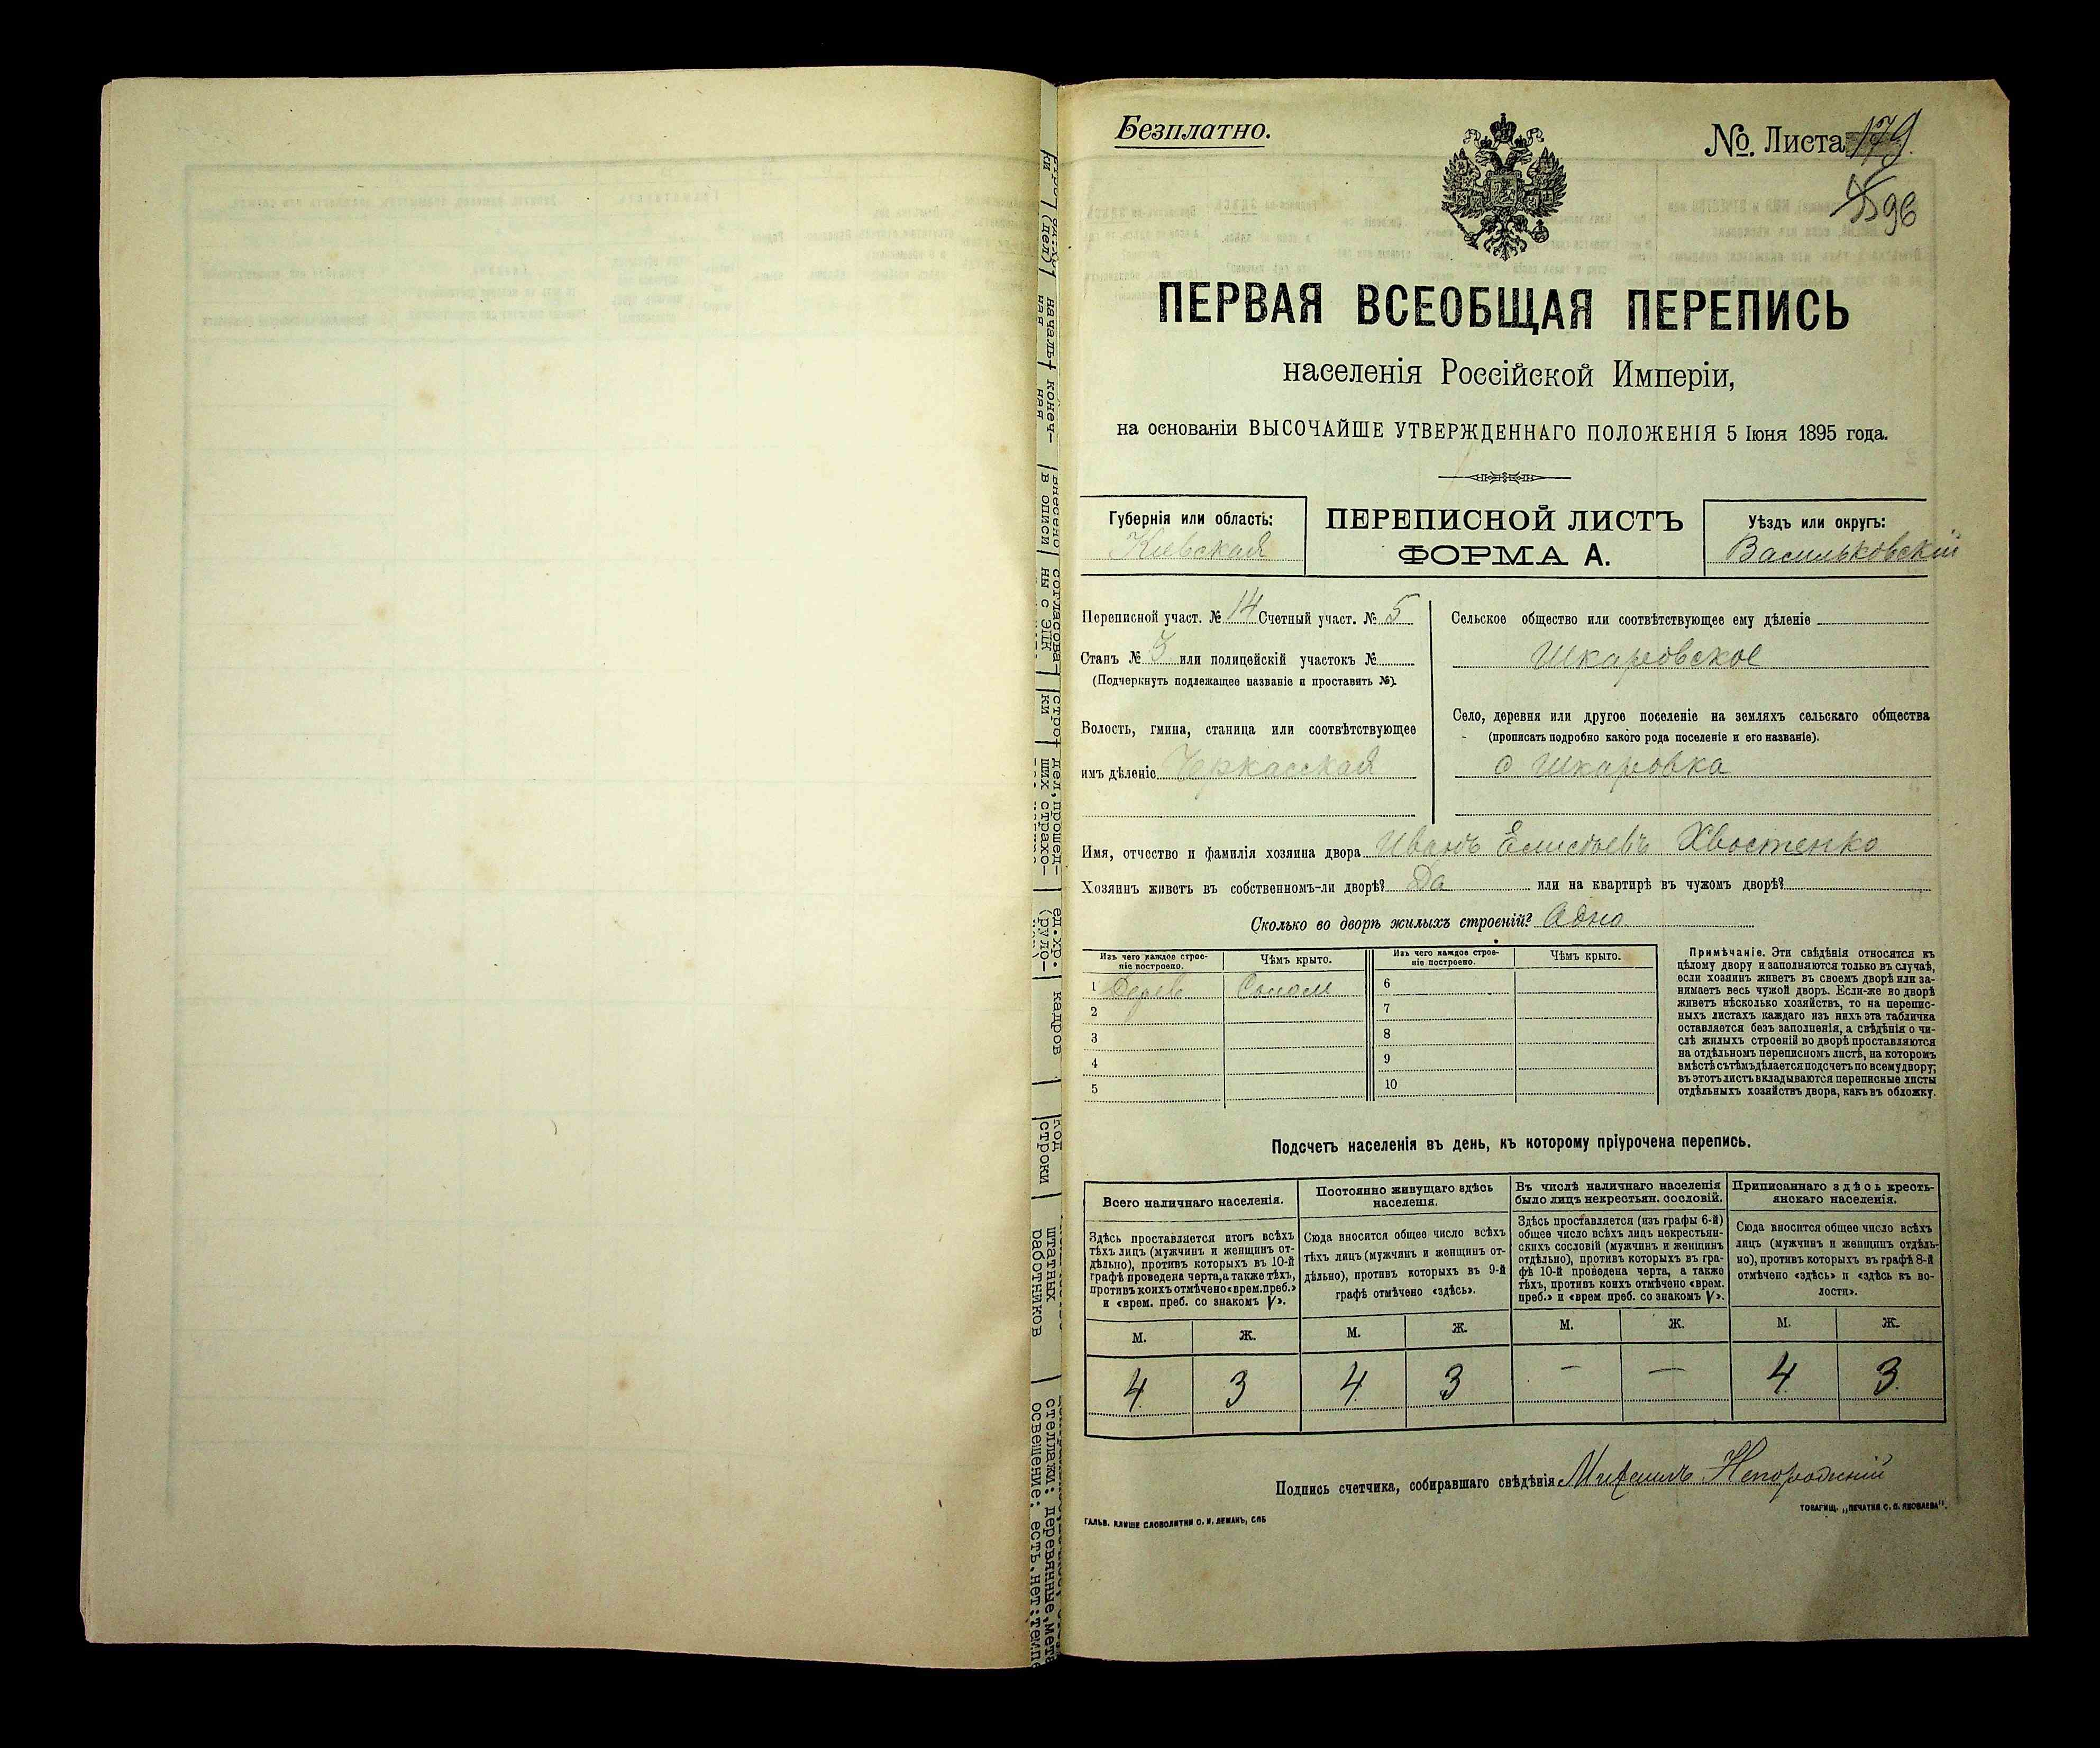 Безплатно.
№. Листа 179
96
ПЕРВАЯ ВСЕОБЩАЯ ПЕРЕПИСЬ
населенія Россійской Имперіи,
на основаніи ВЫСОЧАЙШЕ УТВЕРЖДЕННАГО ПОЛОЖЕНІЯ 5 Іюня 1895 года.
Губернія или область:
Кіевская
ПЕРЕПИСНОЙ ЛИСТЪ
ФОРМА А.
Уѣздъ или округъ:
Васильковскій
Переписной участ. № 14 Счетный участ. № 5
Станъ № 3 или полицейскій участокъ №
(Подчеркнуть подлежащее названіе и проставить №).
Волость, гмина, станица или соотвѣтствующее
имъ дѣленіе Черкасская
Сельское общество или соотвѣтствующее ему дѣленіе
Шкаровское
Село, деревня или другое поселеніе на земляхъ сельскаго общества
(прописать подробно какого рода поселеніе и его названіе).
с Шкаровка
Имя, отчество и фамилія хозяина двора Иванъ Елисѣевъ Хвостенко
Хозяинъ живетъ въ собственномъ-ли дворѣ? Да или на квартирѣ въ чужомъ дворѣ?
Сколько во дворѣ жилыхъ строеній? Адно
Изъ чего каждое строе-
ніе построено.
Чѣмъ крыто.
Изъ чего каждое строе-
ніе построено.
Чѣмъ крыто.
1 Дерев Солом 6
2 7
3 8
4 9
5 10
Примѣчаніе. Эти свѣдѣнія относятся къ
цѣлому двору и заполняются только въ случаѣ,
если хозяинъ живетъ въ своемъ дворѣ или за-
нимаетъ весь чужой дворъ. Если-же во дворѣ
живетъ нѣсколько хозяйствъ, то на перепис-
ныхъ листахъ каждаго изъ нихъ эта табличка
оставляется безъ заполненія, а свѣдѣнія о чи-
слѣ жилыхъ строеній во дворѣ проставляются
на отдѣльномъ переписномъ листѣ, на которомъ
вмѣстѣ съ тѣмъ дѣлается подсчетъ по всему двору;
въ этотъ листъ вкладываются переписные листы
отдѣльныхъ хозяйствъ двора, какъ въ обложку.
Подсчетъ населенія въ день, къ которому пріурочена перепись.
Всего наличнаго населенія.
Здѣсь проставляется итогъ всѣхъ
тѣхъ лицъ (мужчинъ и женщинъ от-
дѣльно), противъ которыхъ въ 10-й
графѣ проведена черта, а также тѣхъ,
противъ коихъ отмѣчено «врем. преб.»
и «врем. преб. со знакомъ V».
Постоянно живущаго здѣсь
населенія.
Сюда вносится общее число всѣхъ
тѣхъ лицъ (мужчинъ и женщинъ от-
дѣльно), противъ которыхъ въ 9-й
графѣ отмѣчено «здѣсь».
Въ числѣ наличнаго населенія
было лицъ некрестьян. сословій.
Здѣсь проставляется (изъ графы 6-й)
общее число всѣхъ лицъ некрестьян-
скихъ сословій (мужчинъ и женщинъ
отдѣльно), противъ которыхъ въ гра-
фѣ 10-й проведена черта, а также
тѣхъ, противъ коихъ отмѣчено «врем.
преб.» и «врем преб. со знакомъ V».
Приписаннаго здѣсь кресть-
янскаго населенія.
Сюда вносится общее число всѣхъ
лицъ (мужчинъ и женщинъ отдѣль-
но), противъ которыхъ въ графѣ 8-й
отмѣчено «здѣсь» и «здѣсь къ во-
лости».
М. Ж. М. Ж. М. Ж. М. Ж.
4 3 4 3 — — 4 3
Подпись счетчика, собиравшаго свѣдѣнія Михаилъ
ГАЛЬВ. КЛИШЕ СЛОВОЛИТНИ О. И. ЛЕМАНЪ, СПБ
ТОВАРИЩ. „ПЕЧАТНЯ С. П. ЯКОВЛЕВА".
ки (дел)
началь- конеч-
ная ная
внесено согласова-
в описи ны с ЭПК
ки
дел, прошед-
ших страхо-
ед.хр.
(руло-
кадров
код
строки
штатных
работников
стеллажи: деревянные, мет
освещение: есть, нет; темп